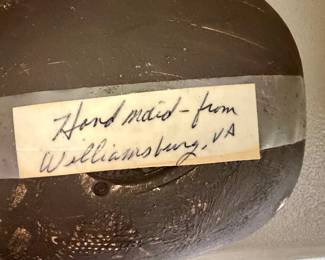 Hand maid - from
Williamsburg, VA